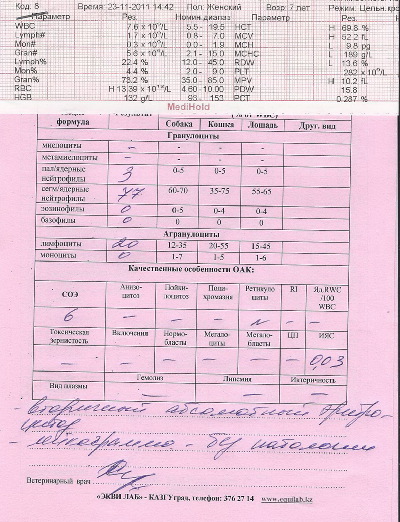 Код: 8 Время: 23-11-2011 14:42 Пол: Женский Возр: 7 лет Режим: Цельн. кро
Параметр Рез. Номин диапаз Параметр Рез.
WBC 7.6 x10⁹/L 5.5 - 19.5 HCT H 69.8 %
Lymph# 1.7 x10⁹/L 0.8 - 7.0 MCV H 52.2 fL
Mon# 0.3 x10⁹/L 0.0 - 1.9 MCH L 9.8 pg
Gran# 5.6 x10⁹/L 2.1 - 15.0 MCHC L 189 g/L
Lymph% 22.4 % 12.0 - 45.0 RDW L 13.6 %
Mon% 4.4 % 2.0 - 9.0 PLT 282 x10⁹/L
Gran% 73.2 % 35.0 - 85.0 MPV H 10.2 fL
RBC H 13.39 x10¹²/L 4.60 - 10.00 PDW 15.8
HGB 132 g/L 93 - 153 PCT 0.287 %
MediHold
формула Собака Кошка Лошадь Друг. вид
Гранулоциты
миелоциты - -
метамиелоциты - -
пал/ядерные нейтрофилы 3 0-5 0-5 0-5
сегм/ядерные нейтрофилы 77 60-70 35-75 55-65
эозинофилы 0 0-5 0-4 0-4
базофилы 0 0 0 0
Агранулоциты
лимфоциты 20 12-35 20-55 15-45
моноциты 0 1-7 1-5 1-6
Качественные особенности ОАК:
СОЭ Анизоцитоз Пойкилоцитоз Полихромазия Ретикулоциты RI Яд.RWC /100 WBC
6 - - - N - -
Токсическая зернистость Включения Нормобласты Мегалоциты Мегалобласты ЦП ИЯС
- - - - - - 0,03
Вид плазмы Гемолиз Липемия Иктеричность
- - -
- вторичный абсолютный эритроцитоз
- лейкограмма - без патологии
Ветеринарный врач
«ЭКВИ ЛАБ» - КАЗГУград, телефон: 376 27 14 www.equilab.kz